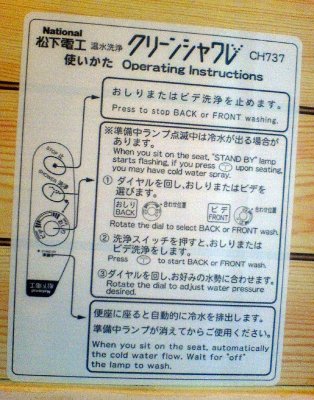 National
松下電工 温水洗浄 クリーンシャワレ CH737
使いかた Operating Instructions
おしりまたはビデ洗浄を止めます。
Press to stop BACK or FRONT washing.
※準備中ランプ点滅中は冷水が出る場合が
あります。
When you sit on the seat, "STAND BY" lamp
starts flashing, if you press upon seating,
you may have cold water spray.
① ダイヤルを回し、おしりまたはビデを
選びます。
おしり BACK 合わせ位置 ビデ FRONT 合わせ位置
Rotate the dial to select BACK or FRONT wash.
② 洗浄スイッチを押すと、おしりまたは
ビデ洗浄をします。
Press to start BACK or FRONT wash.
③ダイヤルを回し、お好みの水勢に合わせます。
Rotate the dial to adjust water pressure
desired.
便座に座ると自動的に冷水を排出します。
準備中ランプが消えてからご使用ください。
When you sit on the seat, automatically
the cold water flow. Wait for "off"
the lamp to wash.
STOP 止
SHOWER 洗浄
National
松下電工